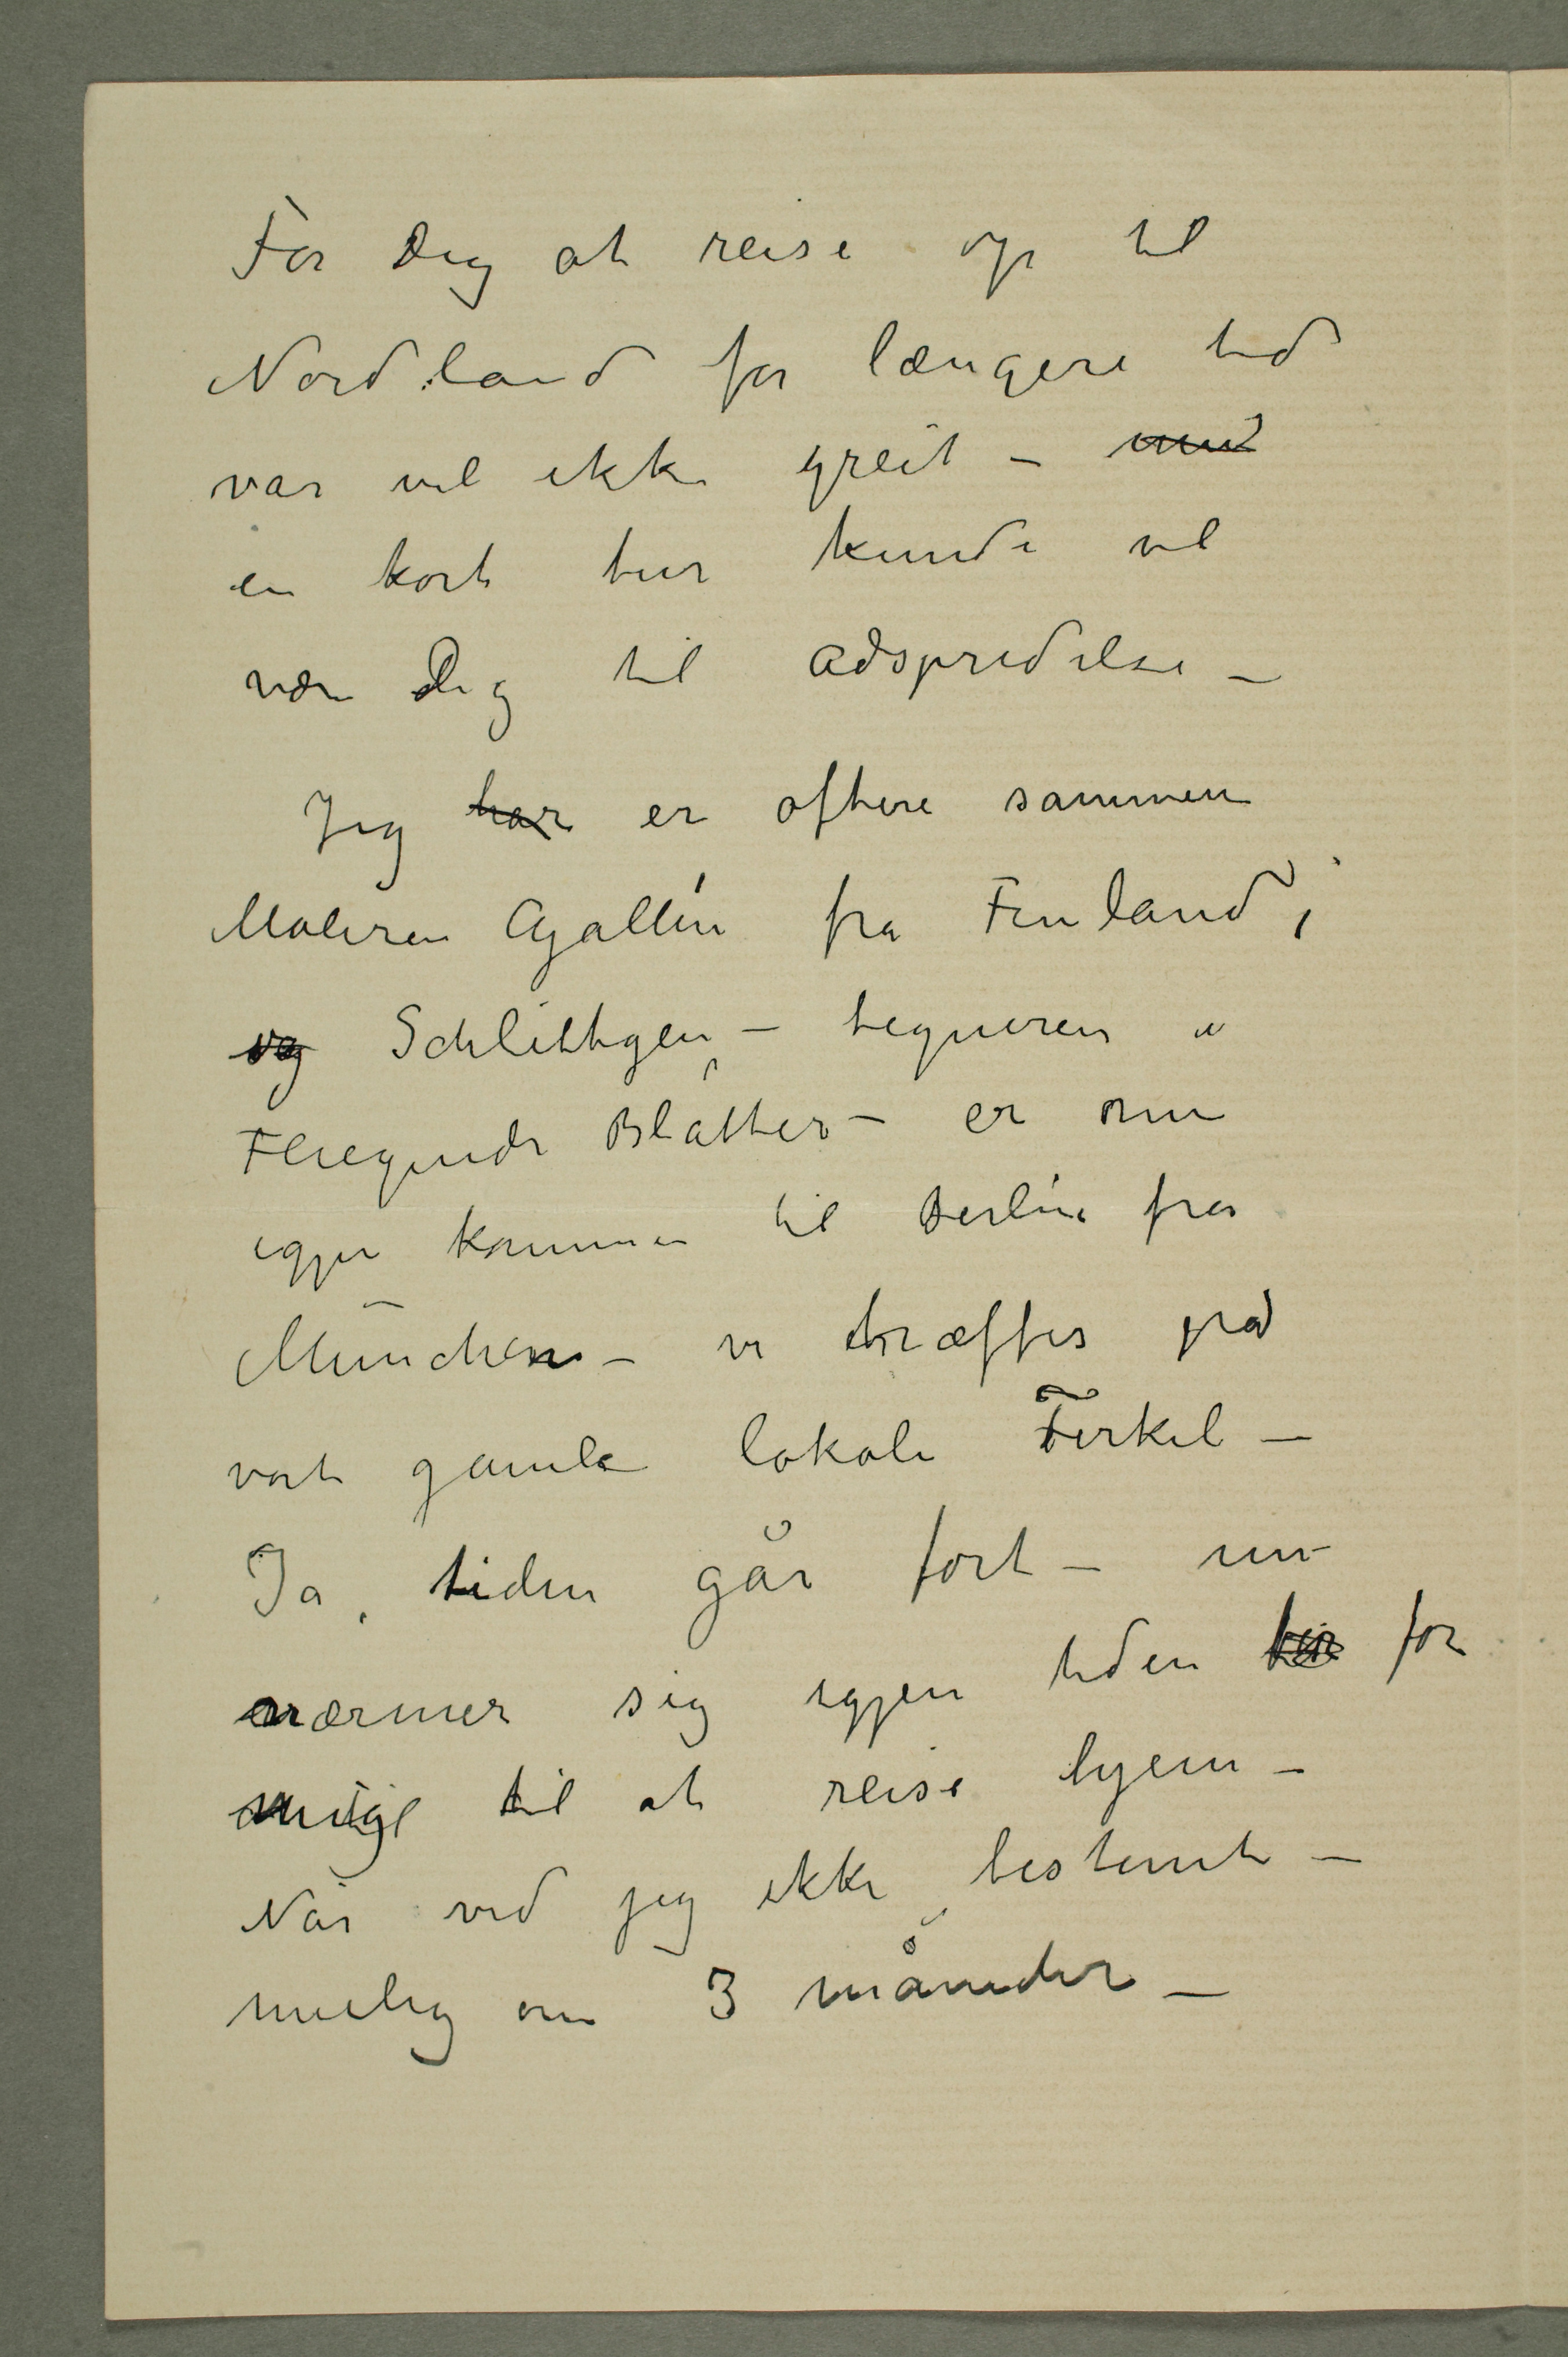 For Dig at reise op til
Nordland for længere tid
var vel ikke greit – med
en kort tur kunde vel
være Dig til adspredelse –
Jeg har er oftere sammen
Maleren Gallén fra Finland,
og Schlittgen – tegneren i
Fliegende Blätter – er nu
igjen kommen til Berlin fra
München – vi træffes på
vort gamle lokale Ferkel –
Ja, tiden går fort – nu
nærmer sig igjen tiden for
mig til at reise hjem –
Når ved jeg ikke bestemt –
muelig om 3 måneder –